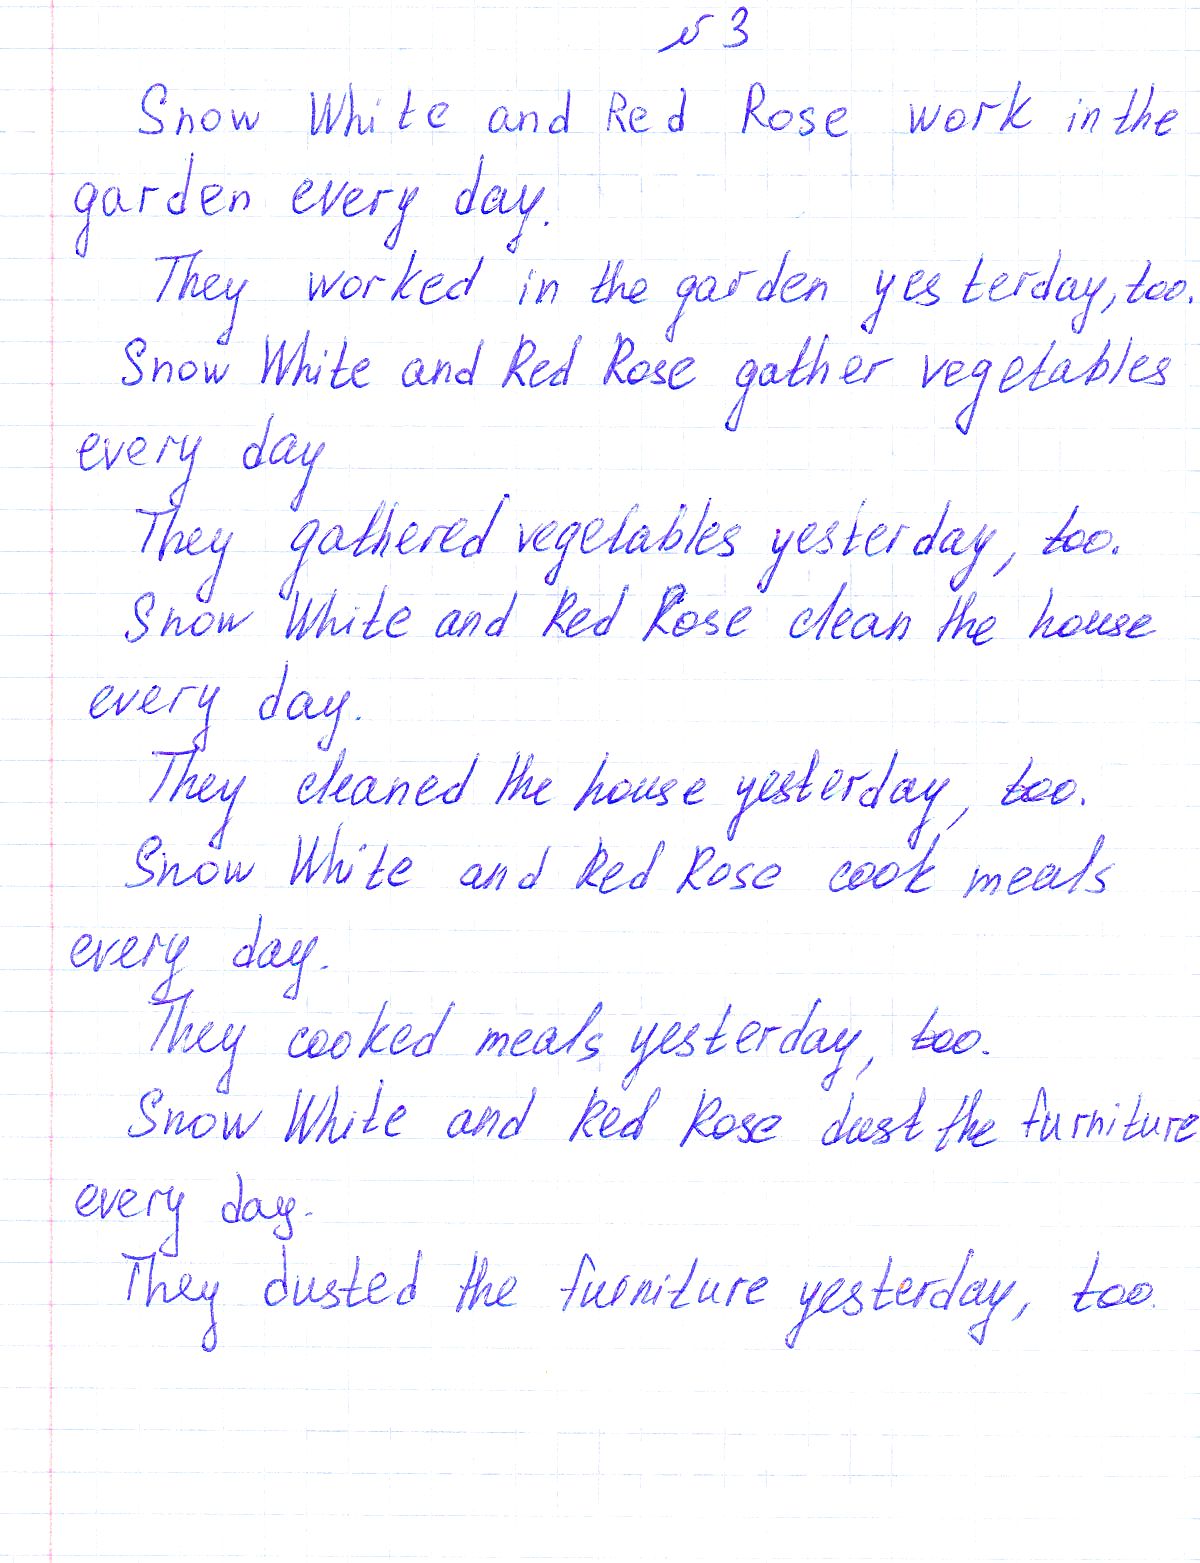 № 3
Snow White and Red Rose work in the
garden every day.
They worked in the garden yesterday, too.
Snow White and Red Rose gather vegetables
every day
They gathered vegetables yesterday, too.
Snow White and Red Rose clean the house
every day.
They cleaned the house yesterday, too.
Snow White and Red Rose cook meals
every day.
They cooked meals yesterday, too.
Snow White and Red Rose dust the furniture
every day.
They dusted the furniture yesterday, too.